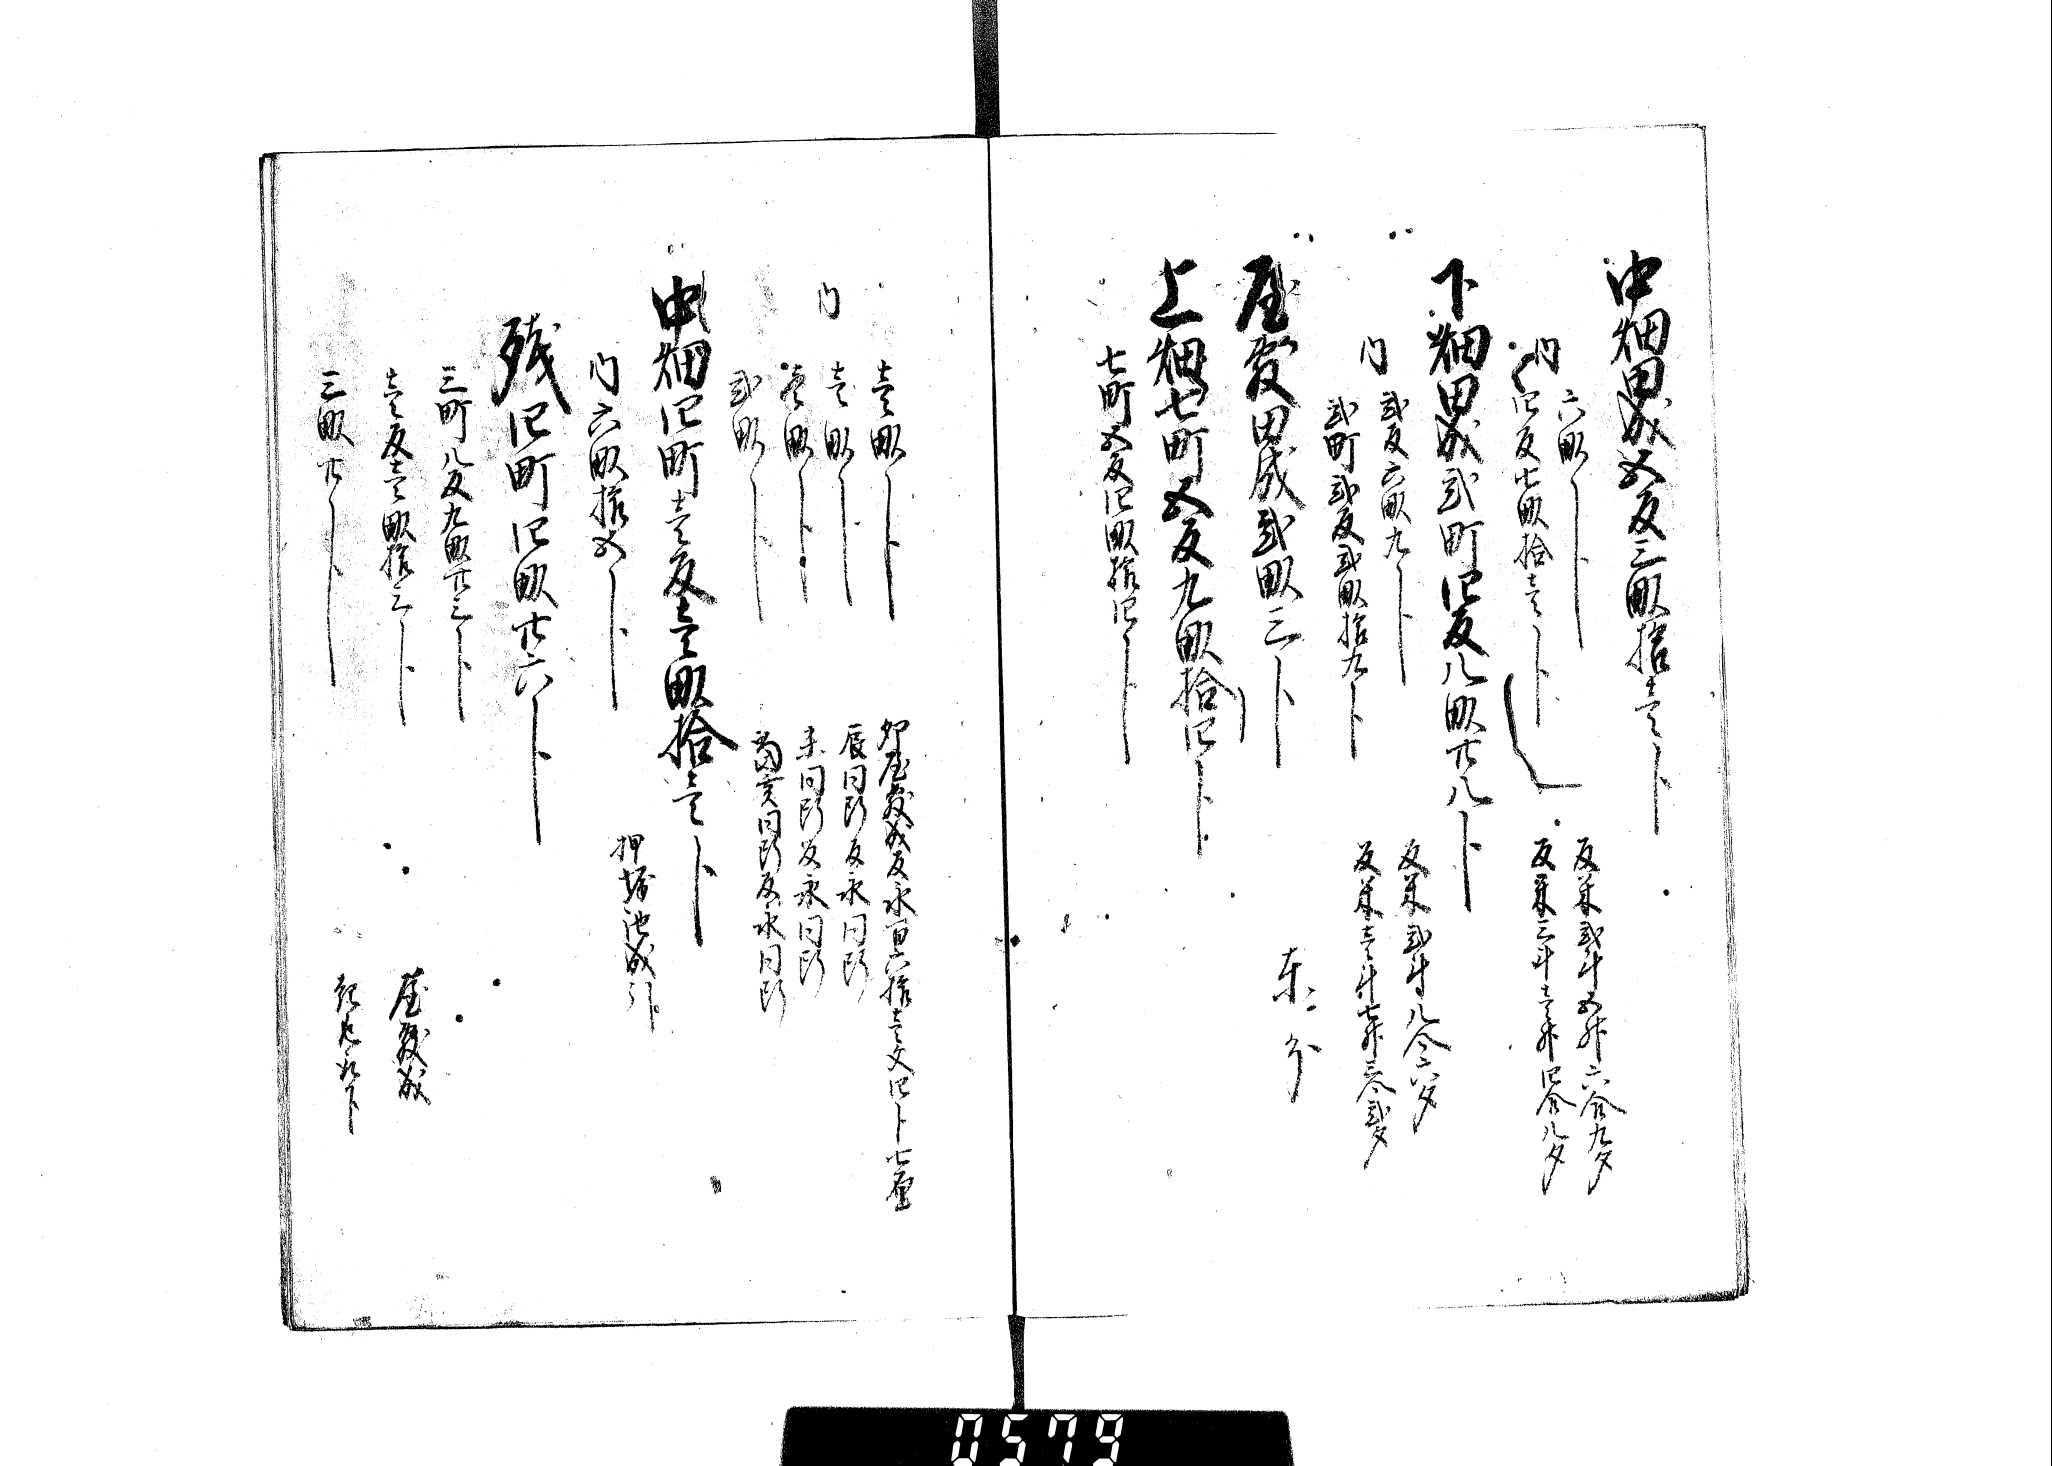 中畑田成五反三畝拾壱卜
内 六畝卜 反米弐斗五升六合九夕
四反七畝拾壱卜 反米三斗壱升四合八夕
下畑田成弐町四反八畝廿八卜
内 弐反六畝九卜 反米弐斗八合六夕
弐町弐反弐畝拾九卜 反米壱斗七升三合弐夕
屋敷田成弐畝三卜
上畑七町五反九畝拾四卜
七町五反四畝拾四卜
壱畝卜 卯屋敷成反永百六拾壱文四卜七厘
内 壱畝卜 辰同断反永同断
壱畝卜 未同断反永同断
弐畝卜 当亥同断反永同断
中畑四町壱反壱畝拾壱卜
内六畝拾五卜 押堀池成引
残四町四畝廿六卜
三町八反九畝廿三卜
壱反壱畝拾三卜 屋敷成
三畝廿卜
0579